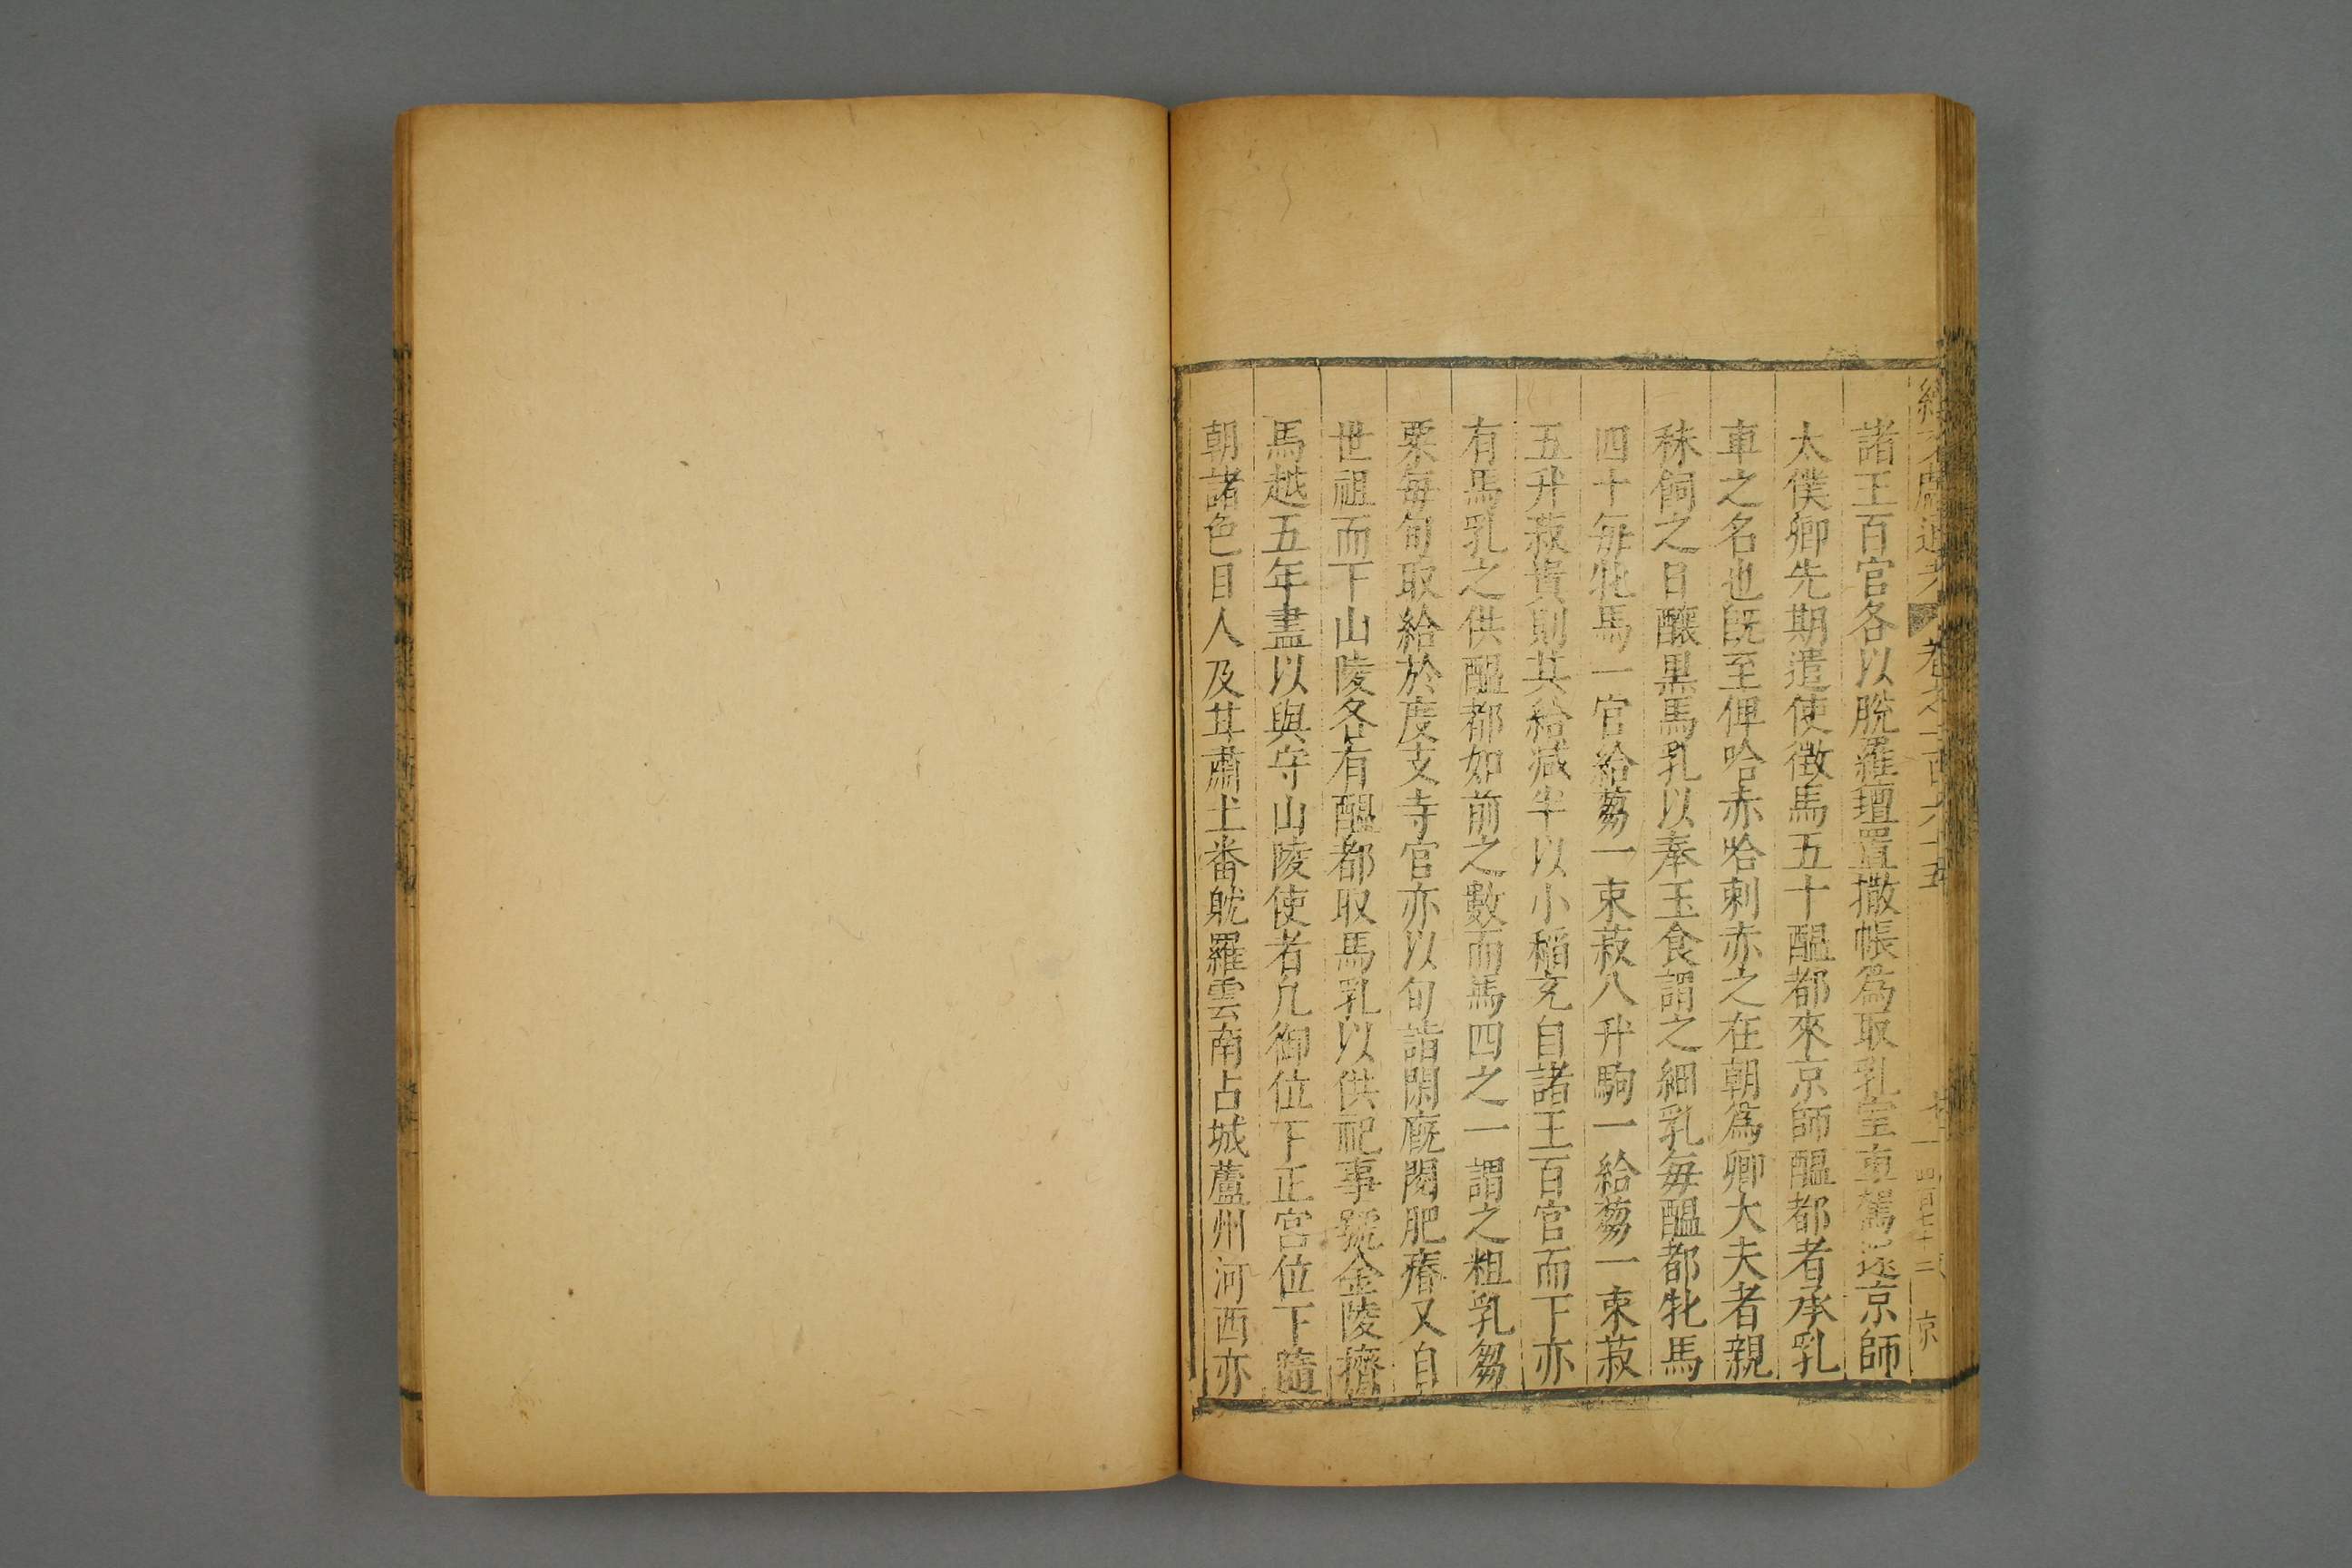 續文獻通考 卷之一百六十五 四百七十二 京
諸王百官各以脫羅氊置撒帳為取乳室車駕還京師
太僕卿先期遣使徵馬五十醖都來京師醖都者承乳
車之名也旣至俾哈赤哈剌赤之在朝為卿大夫者親
秣飼之日釀黑馬乳以奉玉食謂之細乳每醖都牝馬
四十每牝馬一官給蒭一束菽八升駒一給蒭一束菽
五升菽貴則其給减半以小稻充自諸王百官而下亦
有馬乳之供醖都如前之數而馬四之一謂之粗乳芻
粟每旬取給於度支寺官亦以旬詣閑廐閱肥瘠又自
世祖而下山陵各有醖都取馬乳以供祀事號金陵擠
馬越五年盡以與守山陵使者凡御位下正宮位下隨
朝諸色目人及甘肅土番躭羅雲南占城蘆州河西亦